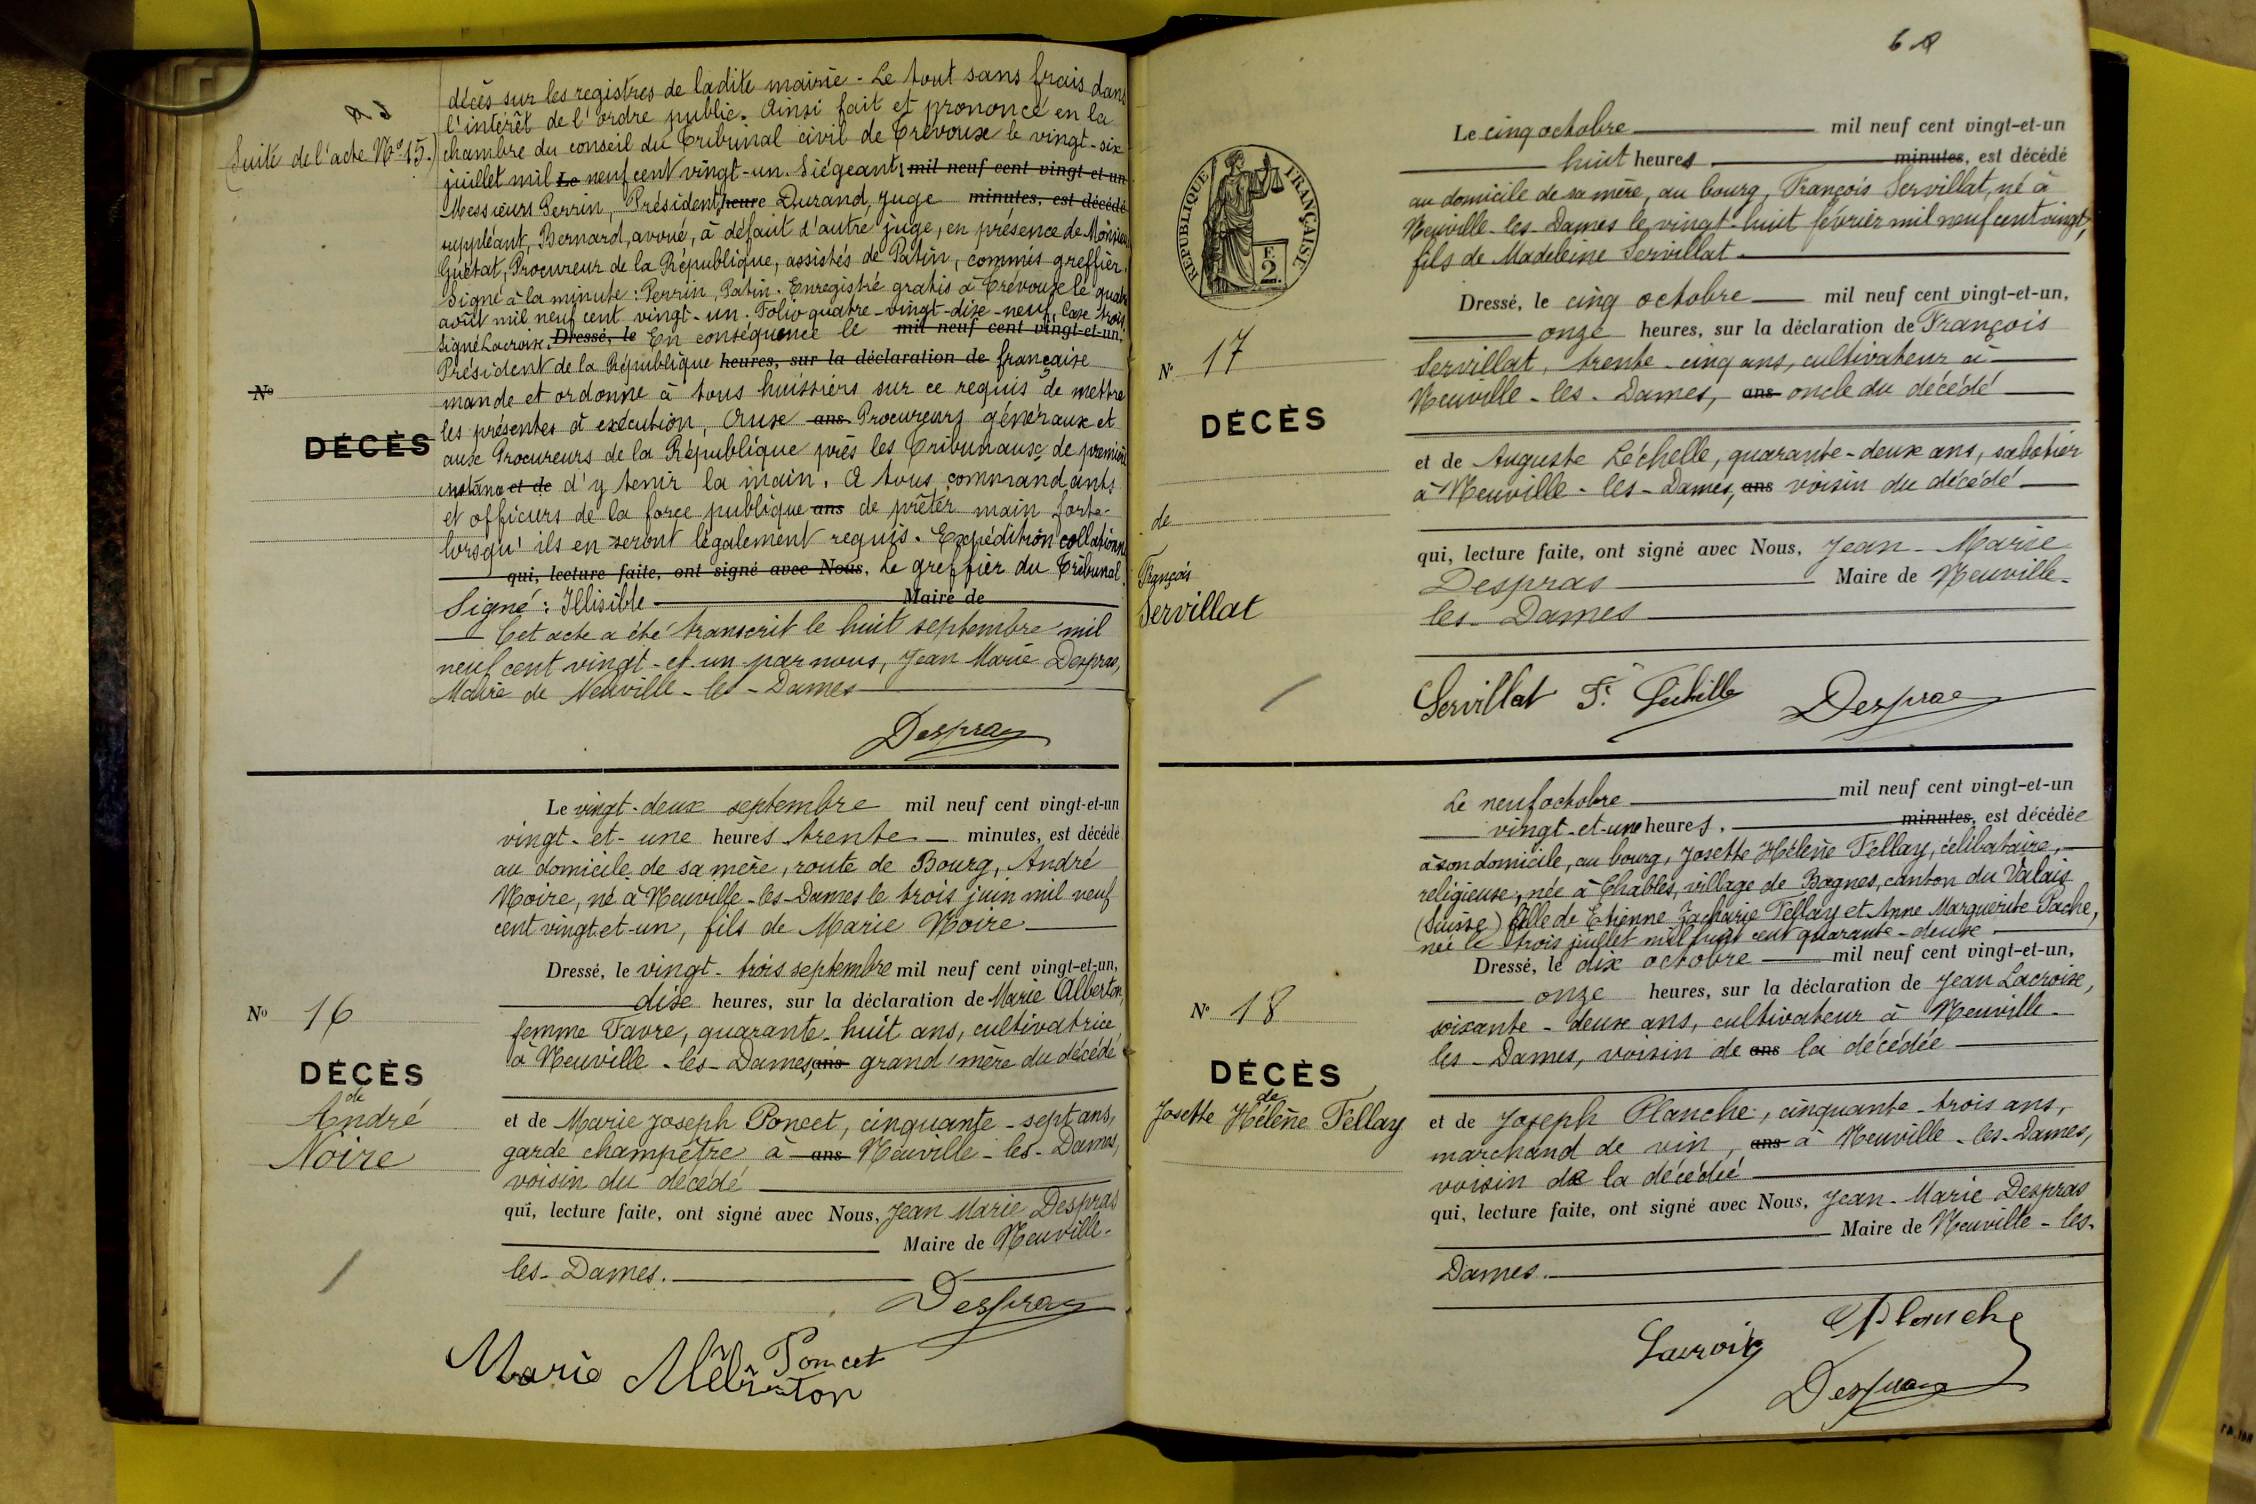 (Suite de l'acte N° 15.)
décès sur les registres de ladite mairie - Le tout sans frais dans
l'intérêt de l'ordre public. Ainsi fait et prononcé en la
chambre du conseil du Tribunal civil de Trévoux le vingt-six
juillet mil Le neuf cent vingt-un. Siégeant, mil neuf cent vingt-et-un
Messieurs Perrin, Président, heure Durand, juge minutes, est décédé
suppléant, Bernard, avoué, à défaut d'autre juge, en présence de Monsieur
Guétat, Procureur de la République, assistés de Patin, commis greffier.
Signé à la minute : Perrin, Patin. Enregistré gratis à Trévoux le quatre
août mil neuf cent vingt-un. Folio quatre-vingt-dix-neuf, Case trois
Signé Lacroix. Dressé, le En conséquence le mil neuf cent vingt-et-un,
Président de la République heures, sur la déclaration de française
mande et ordonne à tous huissiers sur ce requis de mettre
les présentes à exécution, Aux ans Procureurs généraux et
aux Procureurs de la République près les Tribunaux de première
instance et de d'y tenir la main. A tous commandants
et officiers de la force publique ans de prêter main forte
lorsqu'ils en seront légalement requis. Expédition collationnée
qui, lecture faite, ont signé avec Nous, Le greffier du Tribunal.
Signé : Illisible Maire de
Cet acte a été transcrit le huit septembre mil
neuf cent vingt-et-un par nous, Jean Marie Despras,
Maire de Neuville-les-Dames
Despras
N°
DÉCÈS
N° 16
DÉCÈS
de
André
Noire
Le vingt-deux septembre mil neuf cent vingt-et-un
vingt-et-une heures trente minutes, est décédé
au domicile de sa mère, route de Bourg, André
Noire, né à Neuville-les-Dames le trois juin mil neuf
cent vingt et-un, fils de Marie Noire
Dressé, le vingt-trois septembre mil neuf cent vingt-et-un,
dix heures, sur la déclaration de Marie Alberton,
femme Favre, quarante-huit ans, cultivatrice
à Neuville-les-Dames, ans grand'mère du décédé
et de Marie Joseph Poncet, cinquante-sept ans,
garde champêtre à ans Neuville-les-Dames,
voisin du décédé
qui, lecture faite, ont signé avec Nous, Jean Marie Despras
Maire de Neuville-
les-Dames.
Despras
Poncet
Marie
6
RÉPUBLIQUE FRANÇAISE
E
2.
N° 17
DÉCÈS
de
François
Servillat
Le cinq octobre mil neuf cent vingt-et-un
huit heures minutes, est décédé
au domicile de sa mère, au bourg, François Servillat, né à
Neuville-les-Dames le vingt-huit février mil neuf cent vingt,
fils de Madeleine Servillat.
Dressé, le cinq octobre mil neuf cent vingt-et-un,
onze heures, sur la déclaration de François
Servillat, trente-cinq ans, cultivateur à
Neuville-les-Dames, ans oncle du décédé
et de Auguste Léchelle, quarante-deux ans, sabotier
à Neuville-les-Dames, ans voisin du décédé
qui, lecture faite, ont signé avec Nous, Jean-Marie
Despras Maire de Neuville-
les-Dames
Servillat F. Despras
N° 18
DÉCÈS
de
Josette Hélène Fellay
Le neuf octobre mil neuf cent vingt-et-un
vingt-et-une heures, minutes, est décédée
à son domicile, au bourg, Josette Hélène Fellay, célibataire,
religieuse, née à Chables, village de Bagnes, canton du Valais
(Suisse) fille de Etienne Zacharie Fellay et Anne Marguerite Pache,
née le trois juillet mil huit cent quarante-deux
Dressé, le dix octobre mil neuf cent vingt-et-un,
onze heures, sur la déclaration de Jean Lacroix,
soixante-deux ans, cultivateur à Neuville-
les-Dames, voisin de ans la décédée
et de Joseph Planche, cinquante-trois ans,
marchand de vin, ans à Neuville-les-Dames,
voisin de la décédée
qui, lecture faite, ont signé avec Nous, Jean-Marie Despras
Maire de Neuville-les-
Dames.
Planche
Lacroix
Despras